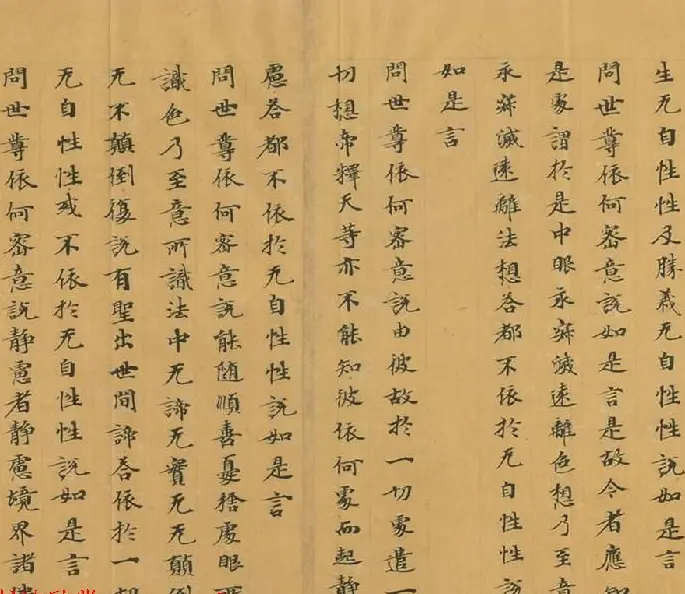 生无自性性及勝義无自性性說如是言
問世尊依何密意說如是言是故今者應
是處謂於是中眼永寂滅遠離色想乃至意
永寂滅遠離法想答都不依於无自性性說
如是言
問世尊依何密意說由彼故於一切處遣一
切想帝釋天等亦不能知彼依何處而起靜
慮答都不依於无自性性說如是言
問世尊依何密意說能随順喜憂捨處眼
識色乃至意所識法中无諦无實无无顛倒
无不顛倒復說有聖出世間諦答依於一切
无自性性或不依於无自性性說如是言
問世尊依何密意說靜慮者靜慮境界諸